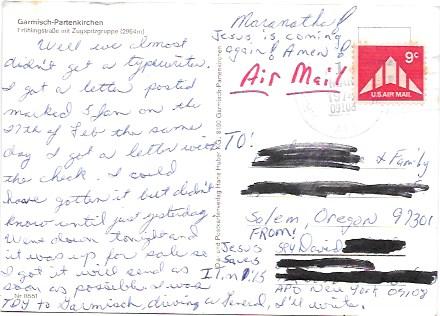 Garmisch-Partenkirchen
Frühlingstraße mit Zugspitzgruppe (2964m)
Well we almost
didn't get a typewriter.
I got a letter posted
marked 5 Jan on the
27th of Feb the same
day I got a letter with
the check. I could
have gotten it but didn't
know until just yesterday.
Went down tonight and
it was up for sale so
I got it will send as
soon as possible. I was
TDY to Garmisch, driving a General, I'll write.
Nr. 8551
8100 Garmisch-Partenkirchen
Maranatha!
Jesus is coming
again! Amen!
Air Mail
9c
U.S. AIR MAIL
1974
09108
TO:
& Family
Salem, Oregon 97301
FROM:
Jesus SP4 David
Saves
I Tim 1:15
APO New York 09108